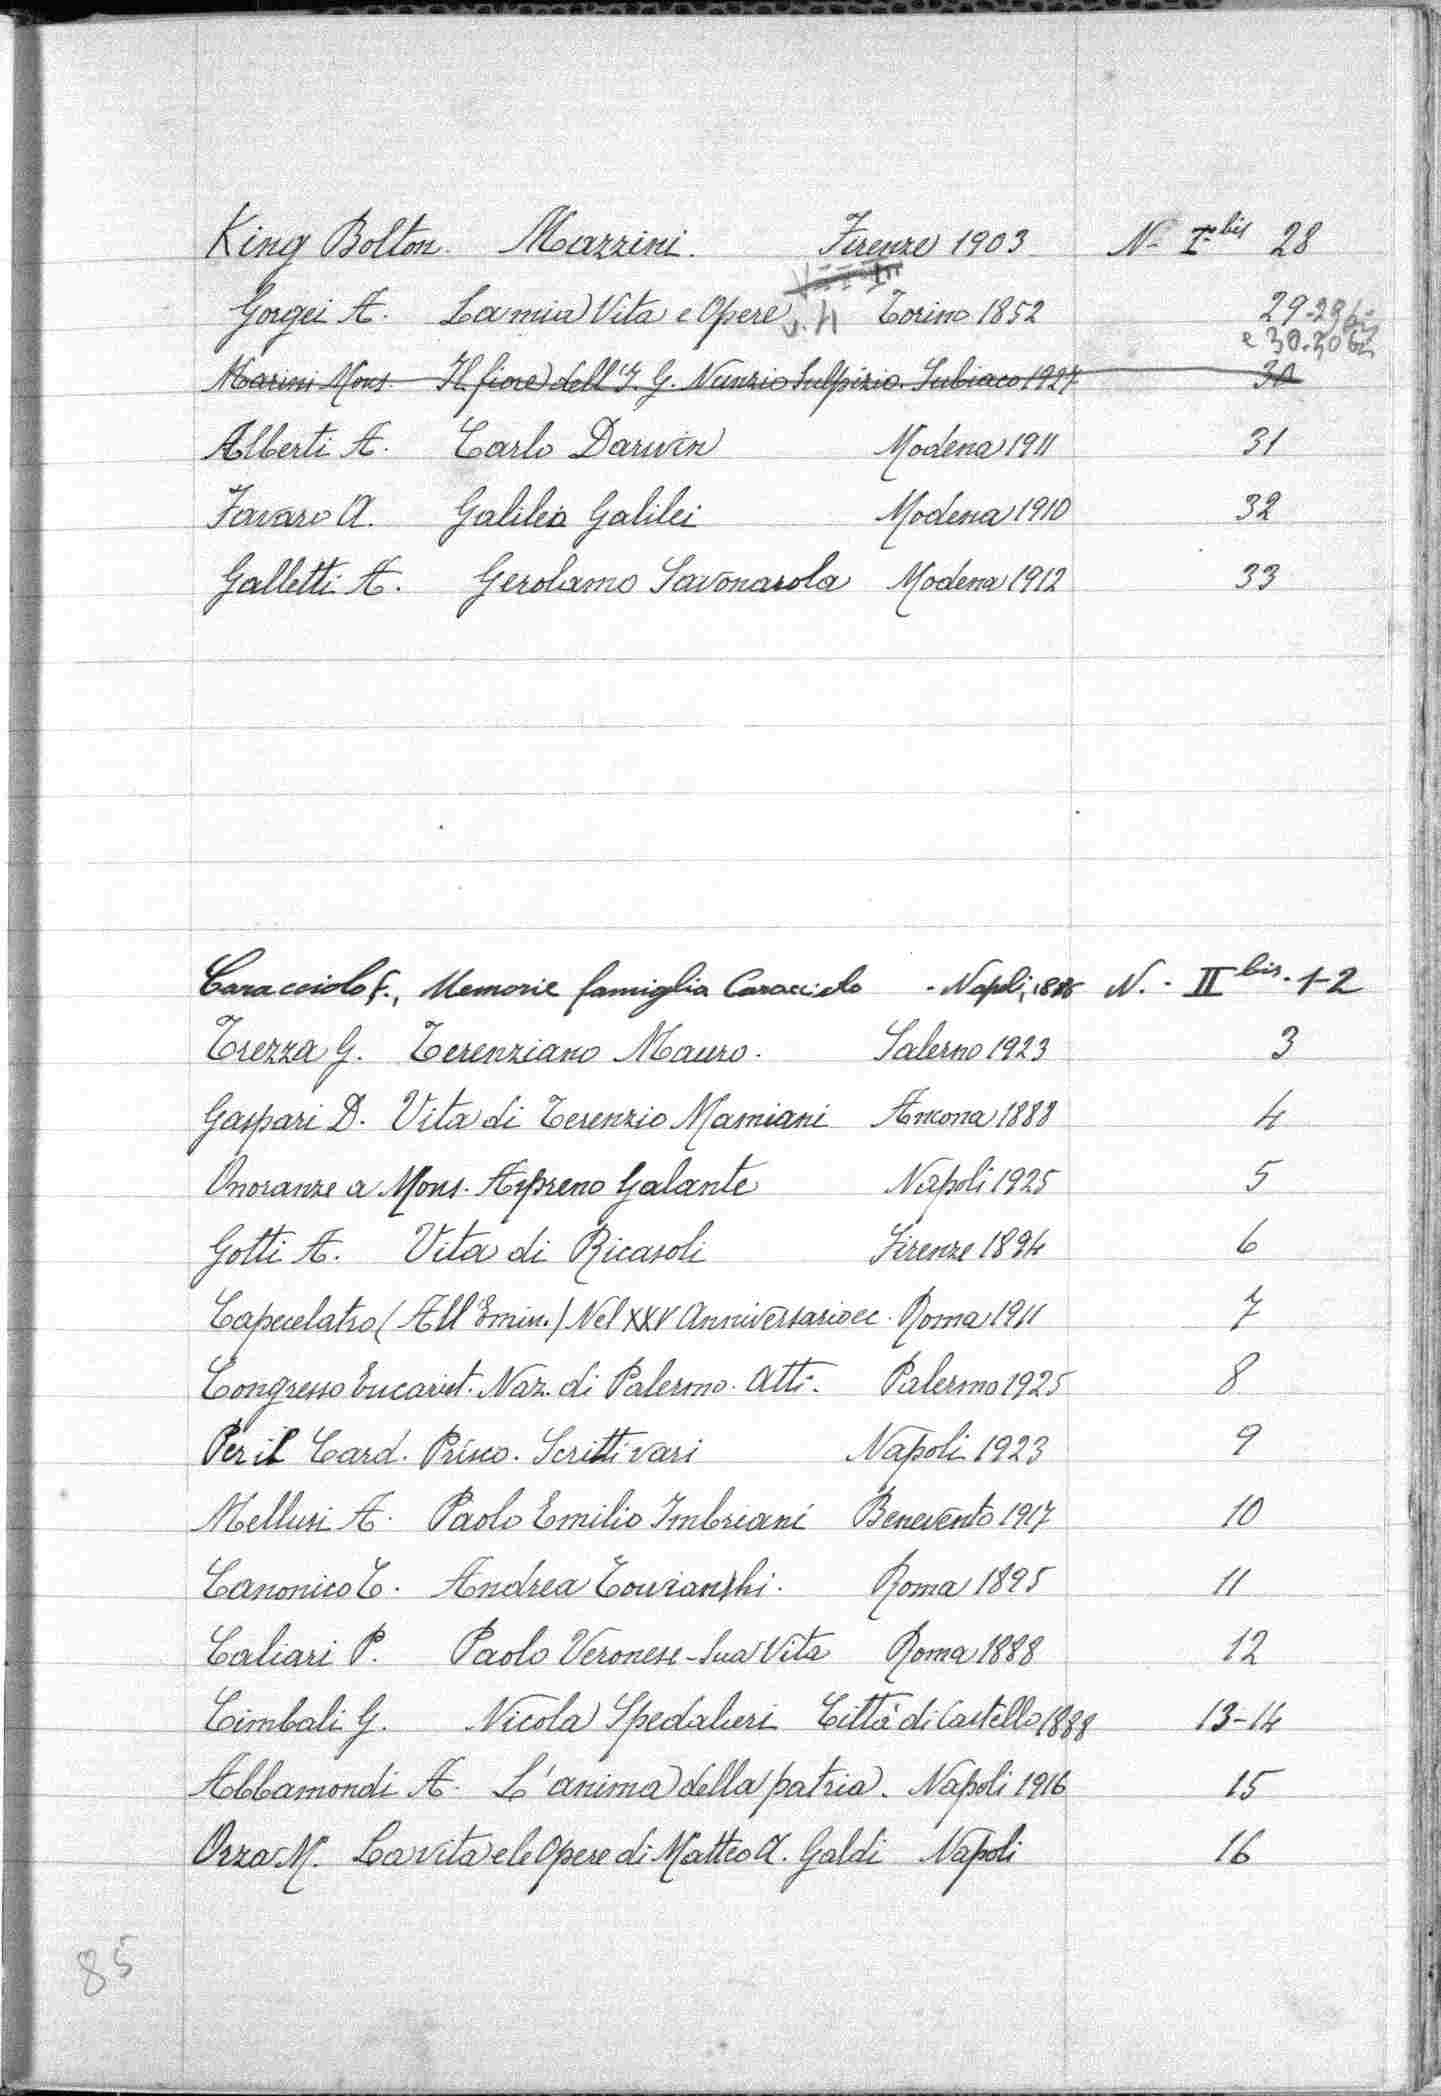 King Bolton. Mazzini. Firenze 1903 N- I-bis 28
Gorgei A. La mia Vita e Opere v. 4 Torino 1852 29-29 bis
e 30-30 bis
Marini Mons. Il fiore dell' I. G. Nunzio Sulpizio. Subiaco 1927 30
Alberti A. Carlo Darwin Modena 1911 31
Favaro A. Galileo Galilei Modena 1910 32
Galletti A. Gerolamo Savonarola Modena 1912 33
Caracciolo F., Memorie famiglia Caracciolo - Napoli, N. - II bis. 1-2
Trezza G. Terenziano Mauro. Salerno 1923 3
Gaspari D. Vita di Terenzio Mamiani Ancona 1888 4
Onoranze a Mons. Aspreno Galante Napoli 1925 5
Gotti A. Vita di Ricasoli Firenze 1894 6
Capecelatro (All'Emin.) Nel XXV Anniversario ec. Roma 1911 7
Congresso Eucarist. Naz. di Palermo. Atti. Palermo 1925 8
Per il Card. Prisco. Scritti vari Napoli 1923 9
Mellusi A. Paolo Emilio Imbriani Benevento 1917 10
Canonico T. Andrea Towianshi. Roma 1895 11
Caliari P. Paolo Veronese - Sua Vita Roma 1888 12
Cimbali G. Nicola Spedalieri Città di Castello 1888 13-14
Abbamondi A. L'anima della patria. Napoli 1916 15
Orza M. La vita e le Opere di Matteo A. Galdi Napoli 16
85